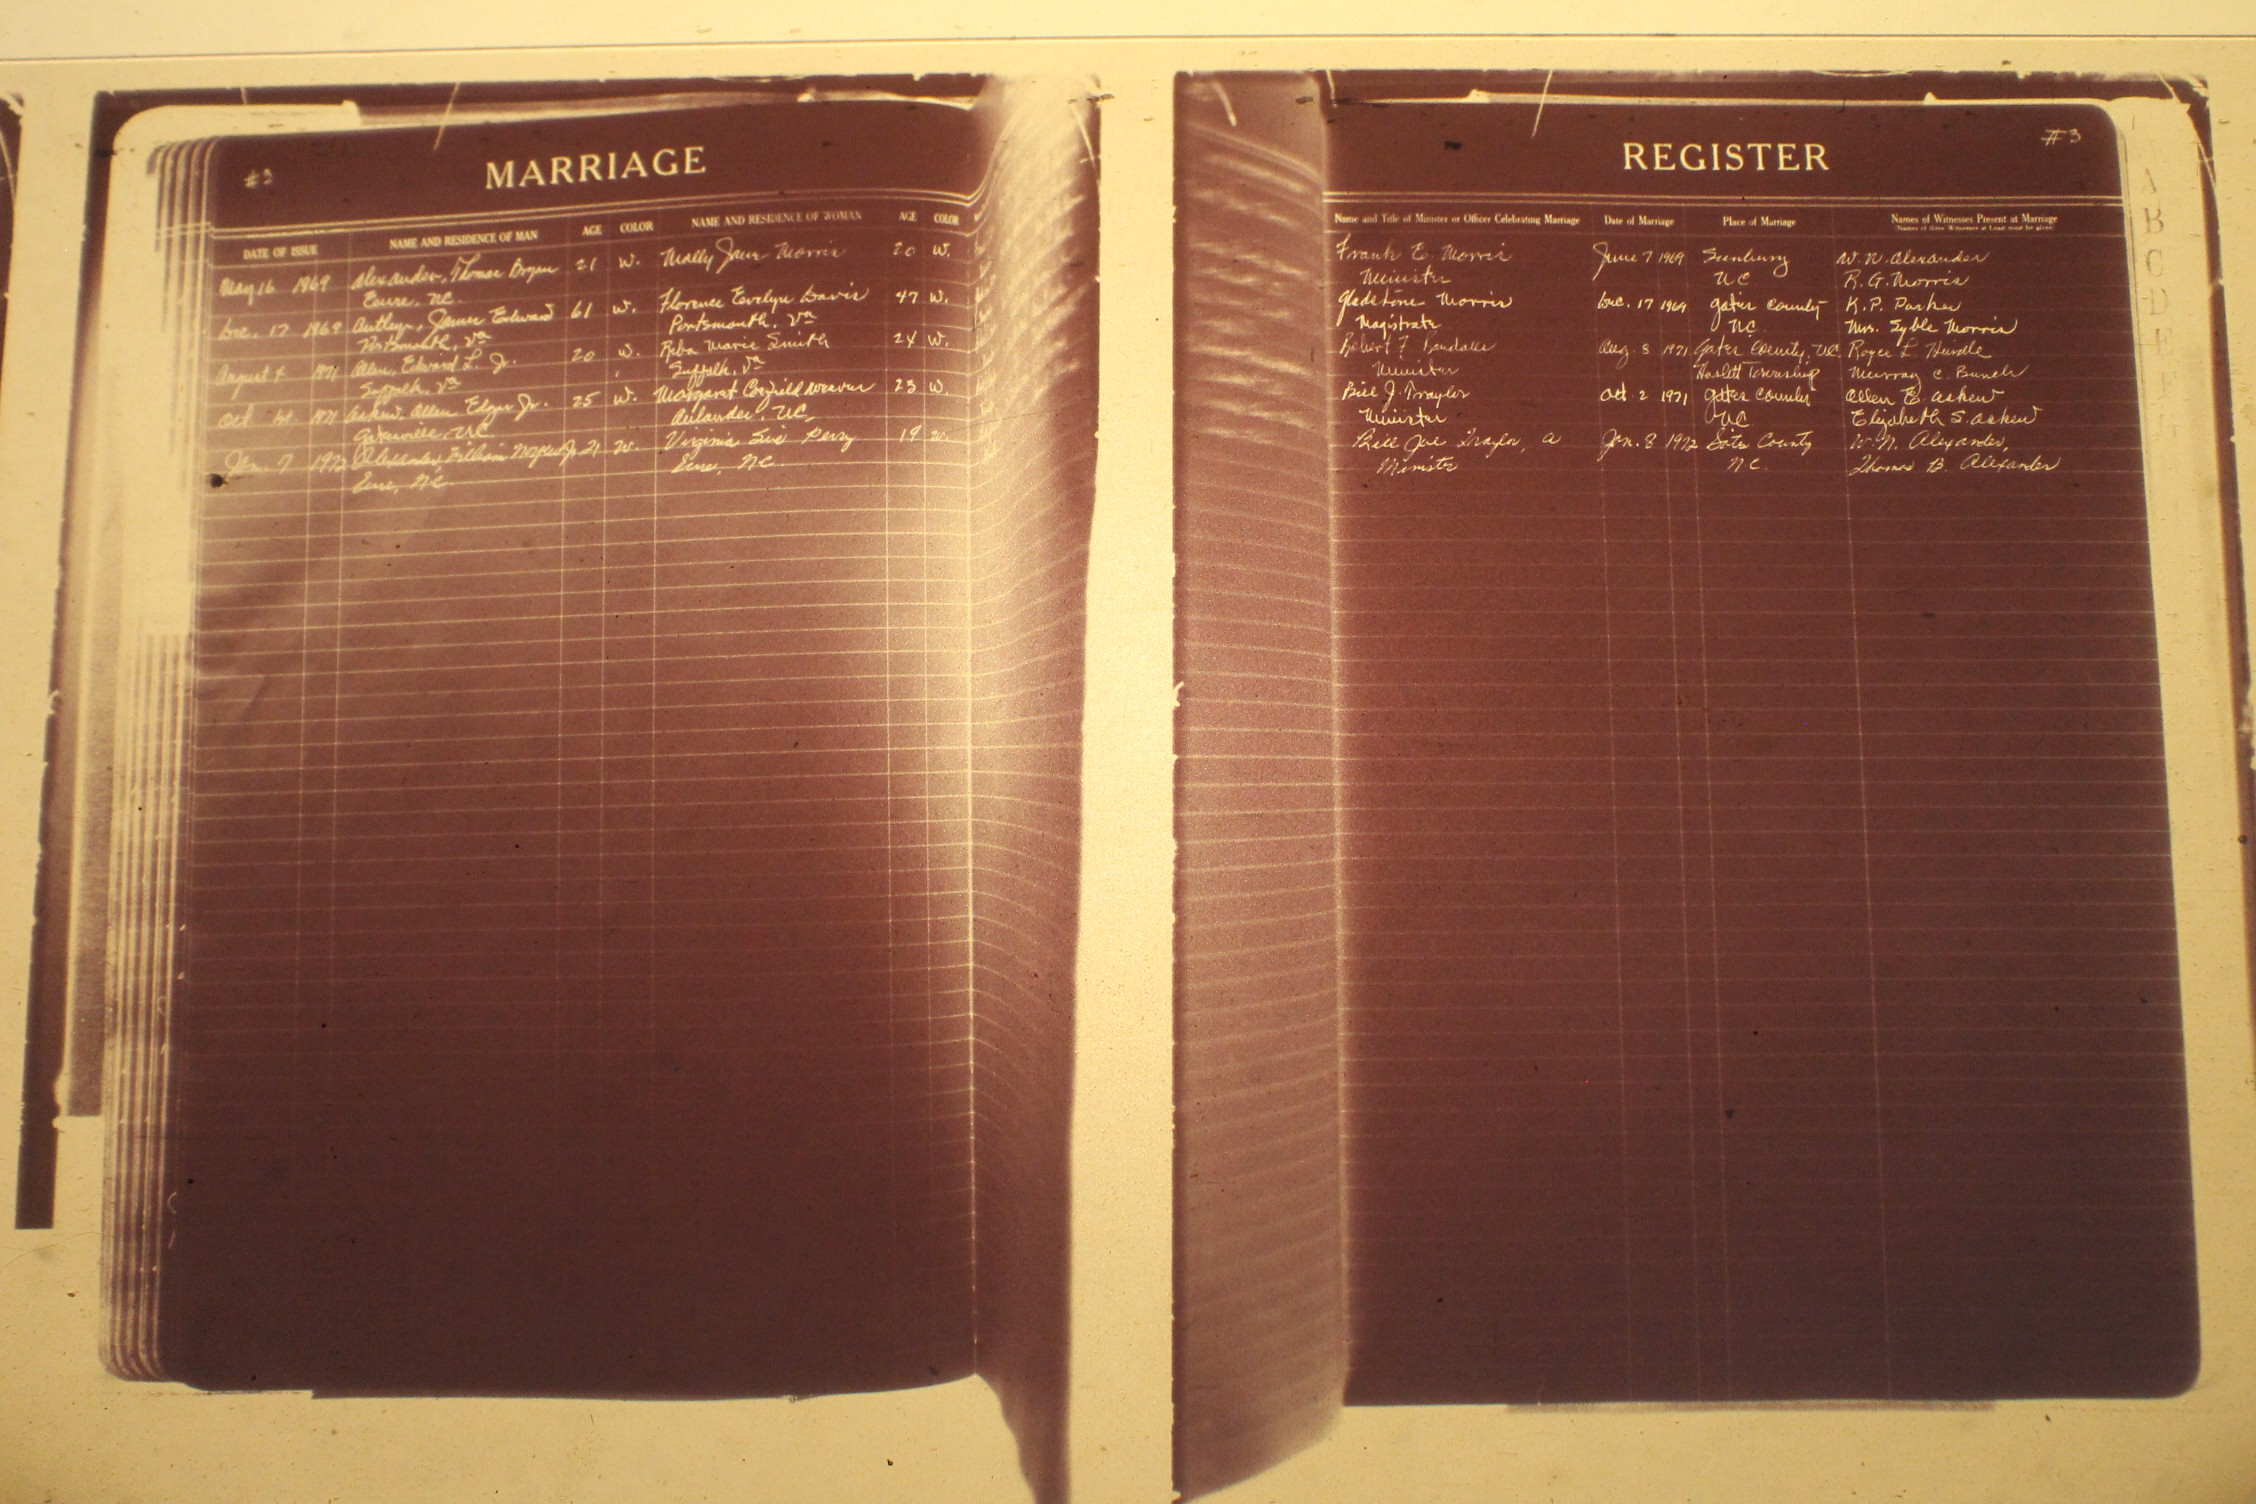 #3 MARRIAGE
DATE OF ISSUE NAME AND RESIDENCE OF MAN AGE COLOR NAME AND RESIDENCE OF WOMAN AGE COLOR
May 16 1969 Alexander, Thomas Bryan 21 W. Molly Jane Morris 20 W.
Eure, NC.
Dec. 17 1969 Autley, James Edward 61 W. Florence Evelyn Davis 47 W.
Portsmouth, Va Portsmouth, Va
August 1971 Allen, Edward L. Jr. 20 W. Reba Marie Smith 24 W.
Suffolk, Va Suffolk, Va
Oct 1st. 1971 Askew, Allen Elger Jr. 25 W. Margaret Weaver 23 W.
Gatesville, NC Aulander, NC
Jan. 7 1972 Alexander, William Jr. 21 W. Virginia Sue Perry 19 W.
Eure, NC Eure, NC.
REGISTER #3
Name and Title of Minister or Officer Celebrating Marriage Date of Marriage Place of Marriage Names of Witnesses Present at Marriage
(Names of three Witnesses at Least must be given)
Frank E. Morris June 7 1969 Sunbury W. N. Alexander
Minister NC R. G. Morris
Gladstone Morris Dec. 17 1969 Gates County K. P. Parker
Magistrate NC. Mrs. Syble Morris
Robert F. Aug. 8 1971 Gates County, NC Royce L. Hurdle
Minister Haslett Township Murray C. Bunch
Bill J. Traylor Oct. 2 1971 Gates County Allen E. Askew
Minister NC Elizabeth S. Askew
Bill Joe Traylor, a Jan. 8 1972 Gates County W. N. Alexander,
Minister N.C. Thomas B. Alexander
A
B
C
D
E
F
G